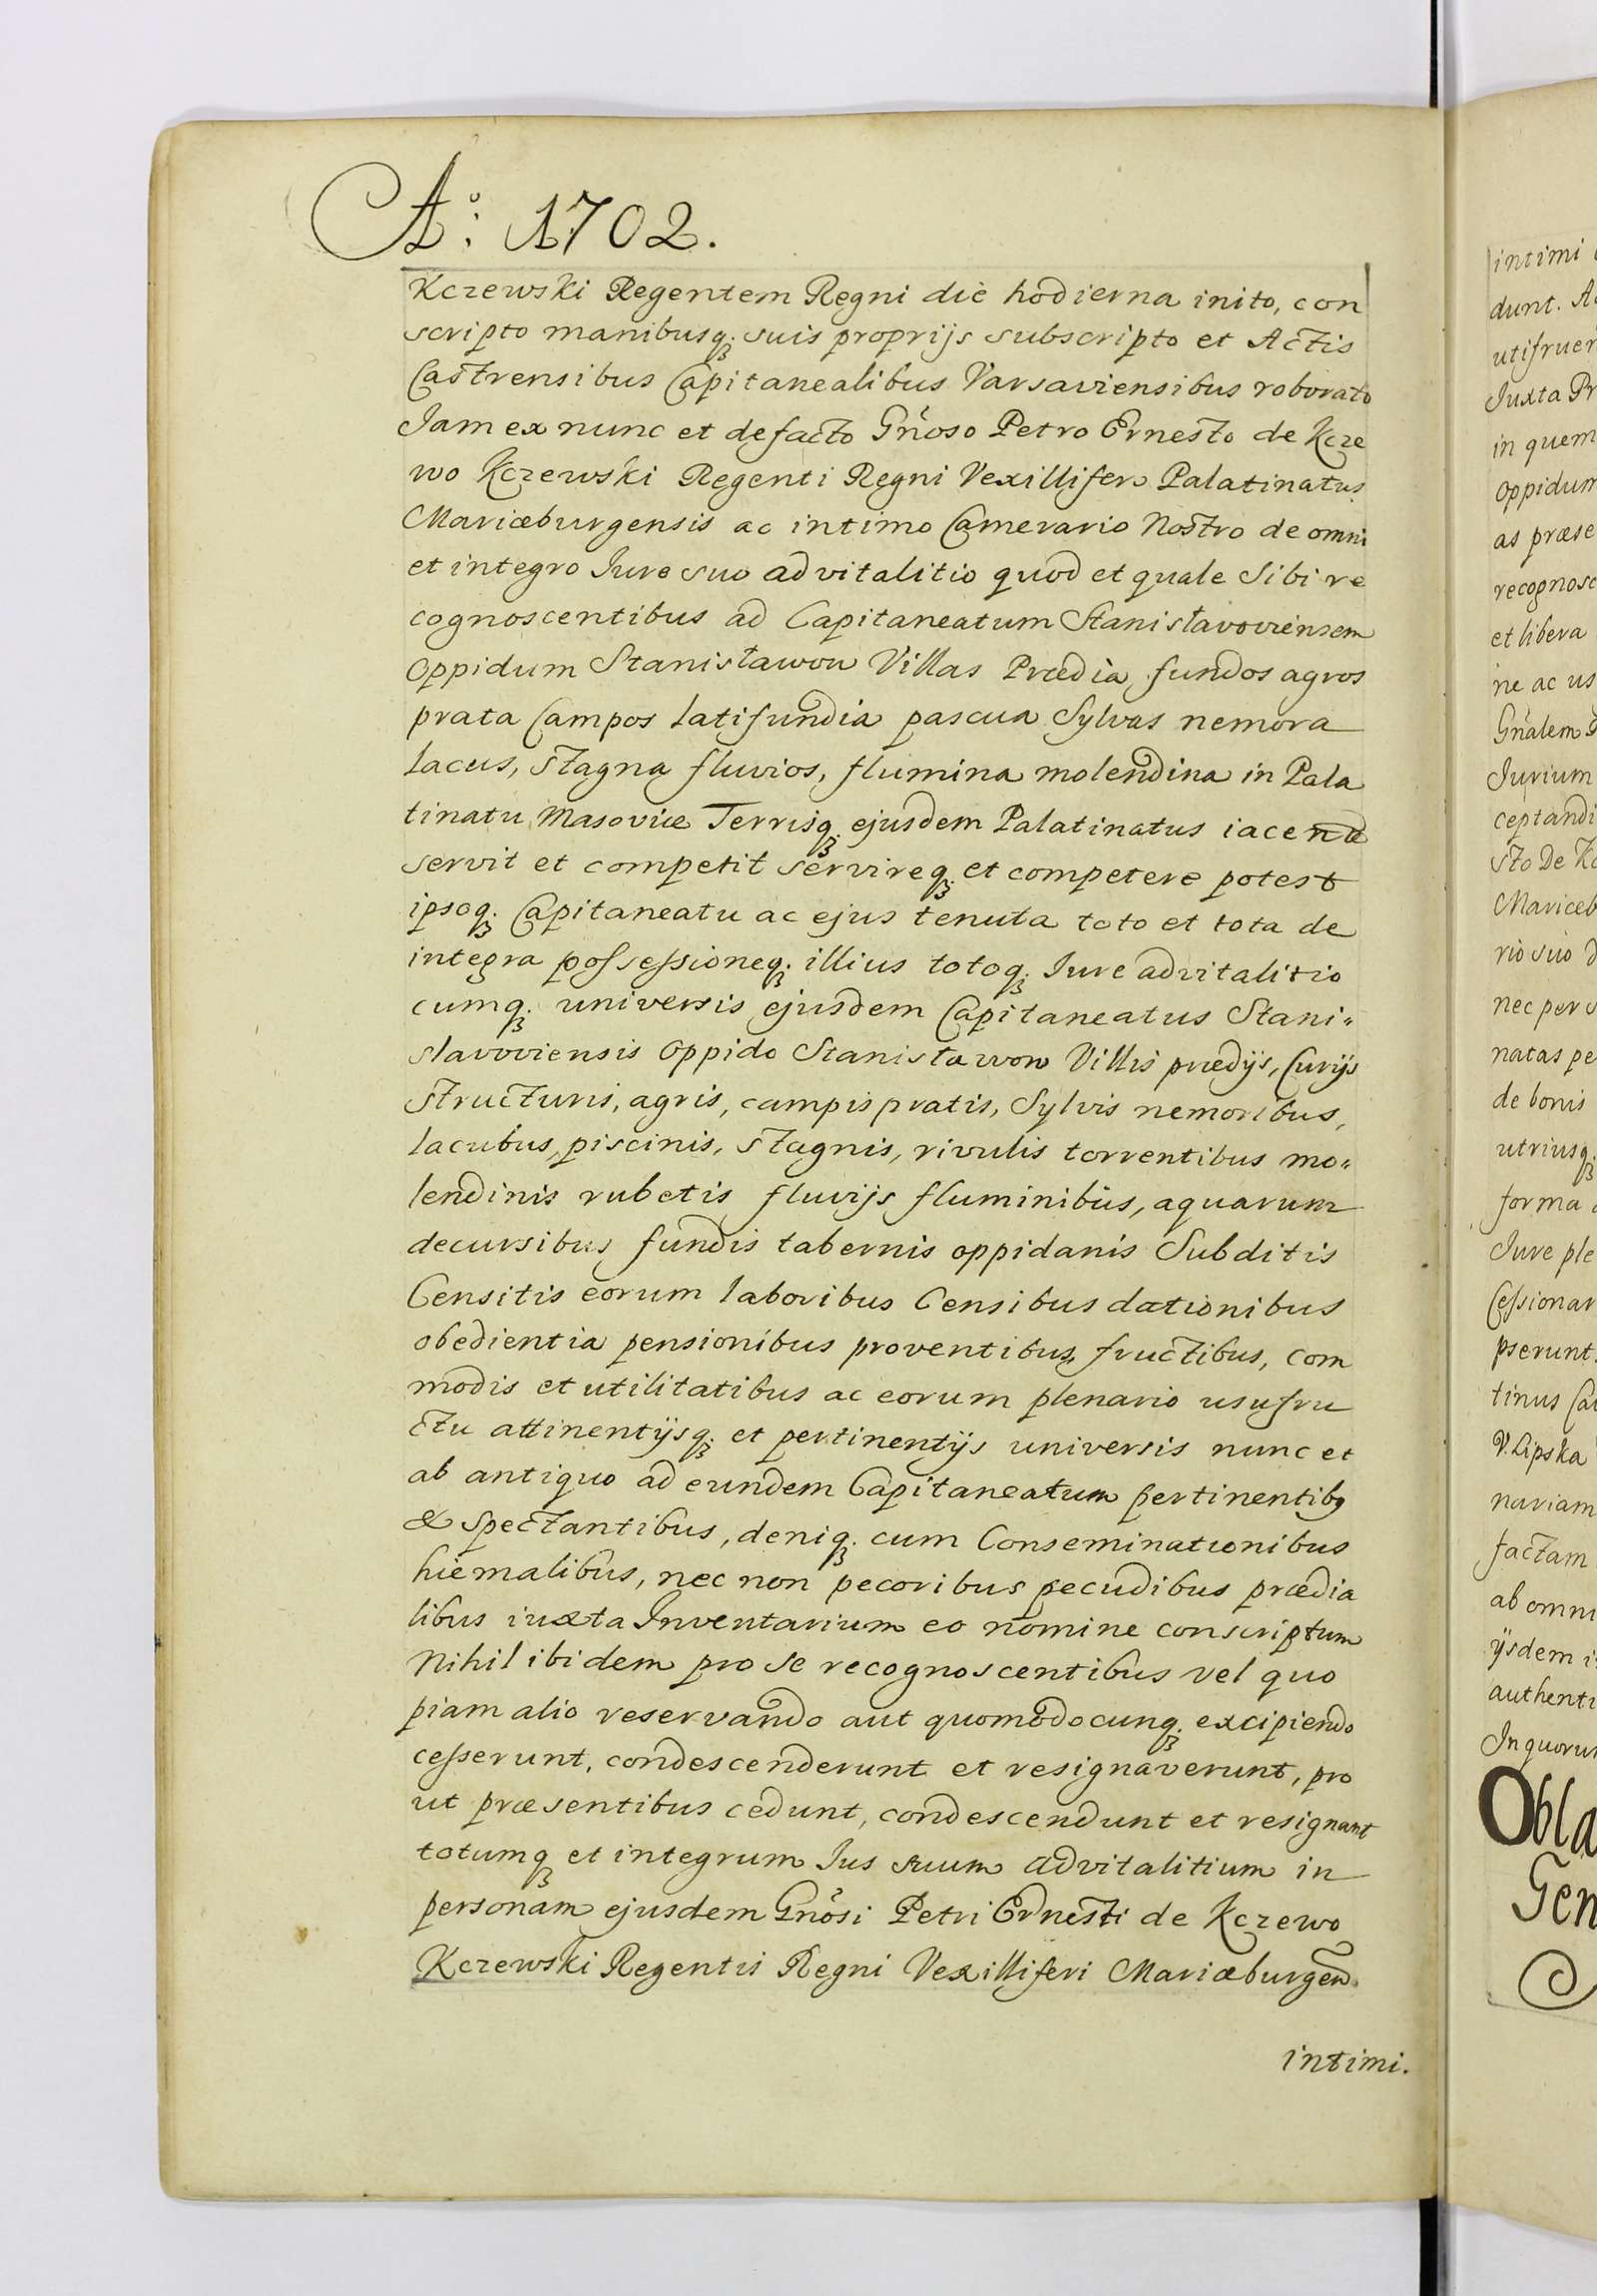 Aº: 1702.
Kczewski Regentem Regni die hodierna inito, con
scripto manibusq; suis proprijs subscripto et Actis
Castrensibus Capitanealibus Varsaviensibus roborato
Jam ex nunc et defacto Gñoso Petro Ernesto de Kcze
wo Kczewski Regenti Regni Vexillifero Palatinatus
Mariæburgensis ac intimo Camerario Nostro de omni
et integro Jure suo advitalitio quod et quale sibi re
cognoscentibus ad Capitaneatum Stanislavoviensem
oppidum Stanisławow Villas Prædia fundos agros
prata Campos latifundia pascua Sylvas nemora
lacus, stagna fluvios, flumina molendina in Pala
tinatu Masoviæ Terrisq; ejusdem Palatinatus iacend
servit et competit servireq; et competere potest
ipsoq; Capitaneatu ac ejus tenuta toto et tota de
integra possessioneq; illius totoq; Jure advitalitio
cumq; universis ejusdem Capitaneatus Stani„
slavoviensis oppido Stanisławow Villis prædijs, Curijs
structuris, agris, campis pratis, Sylvis nemoribus,
lacubus, piscinis, stagnis, rivulis torrentibus mo„
lendinis rubetis fluvijs fluminibus, aquarum
decursibus fundis tabernis oppidanis Subditis
Censitis eorum laboribus Censibus dationibus
obedientia pensionibus proventibus, fructibus, com
modis et utilitatibus ac eorum plenario usufru
ctu attinentijsq; et pertinentijs universis nunc et
ab antiquo ad eundem Capitaneatum pertinentib9
& spectantibus, deniq; cum Conseminationibus
hiemalibus, nec non pecoribus pecudibus prædia
libus iuxta Inventarium eo nomine conscriptum
Nihil ibidem pro se recognoscentibus vel quo
piam alio reservando aut quomodocunq; excipiendo
cesserunt, condescenderunt et resignaverunt, pro
ut præsentibus cedunt, condescendunt et resignant
totumq; et integrum Jus suum advitalitium in
personam ejusdem Gnõsi Petri Ernesti de Kczewo
Kczewski Regentis Regni Vexilliferi Mariæburgen̄.
intimi.
intimi
dunt.
utifruer
Juxta Pr
in quem
oppidum
as præse
recognosc
et libera
ne ac us
Gñalem
Jurium
ceptandi
sto De Kc
Mariæb
rio suo d
nec per s
natas pe
de bonis
utriusq;
forma
Jure ple
Cessionar
pserunt.
tinus Ca
V. Lipska
nariam
factam
ab omni
ijsdem i
authenti
In quorum
Obla
Gen